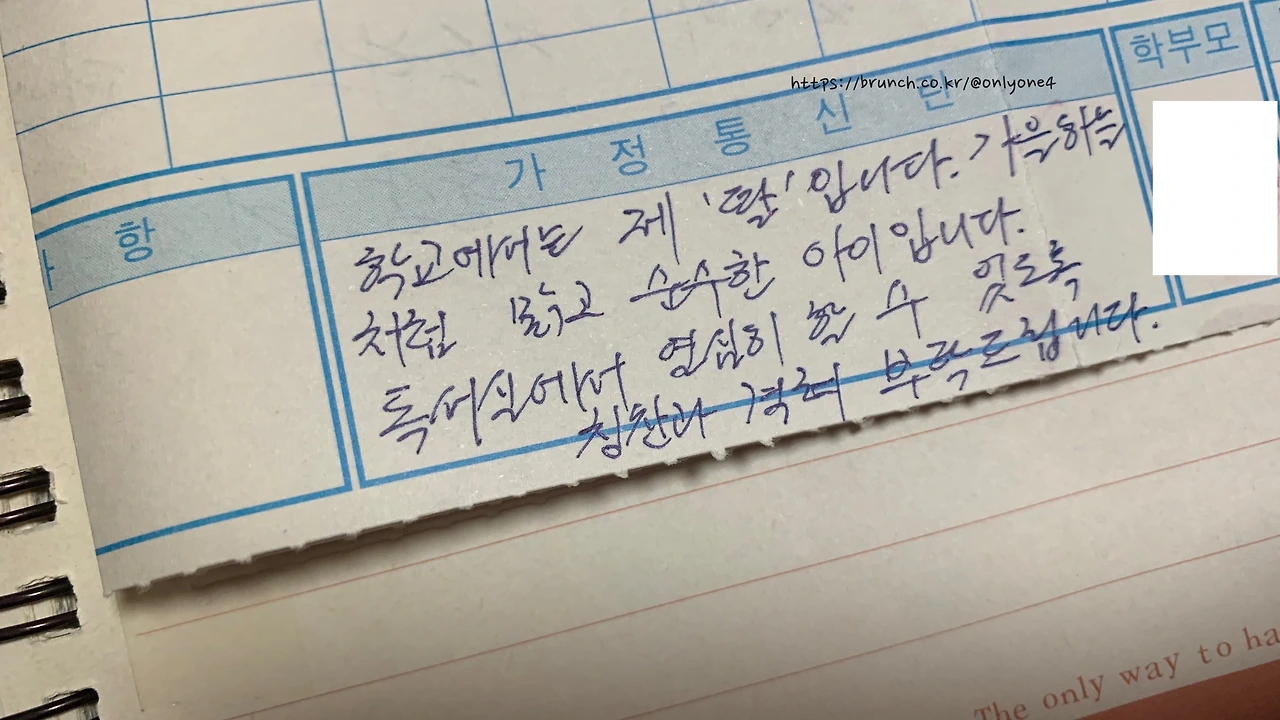 https://brunch.co.kr/@onlyone4
학부모
가 정 통 신 란
항
학교에서는 제 '딸' 입니다. 가을하늘
처럼 맑고 순수한 아이입니다.
독서실에서 열심히 할 수 있도록
칭찬과 격려 부탁드립니다.
The only way to ha